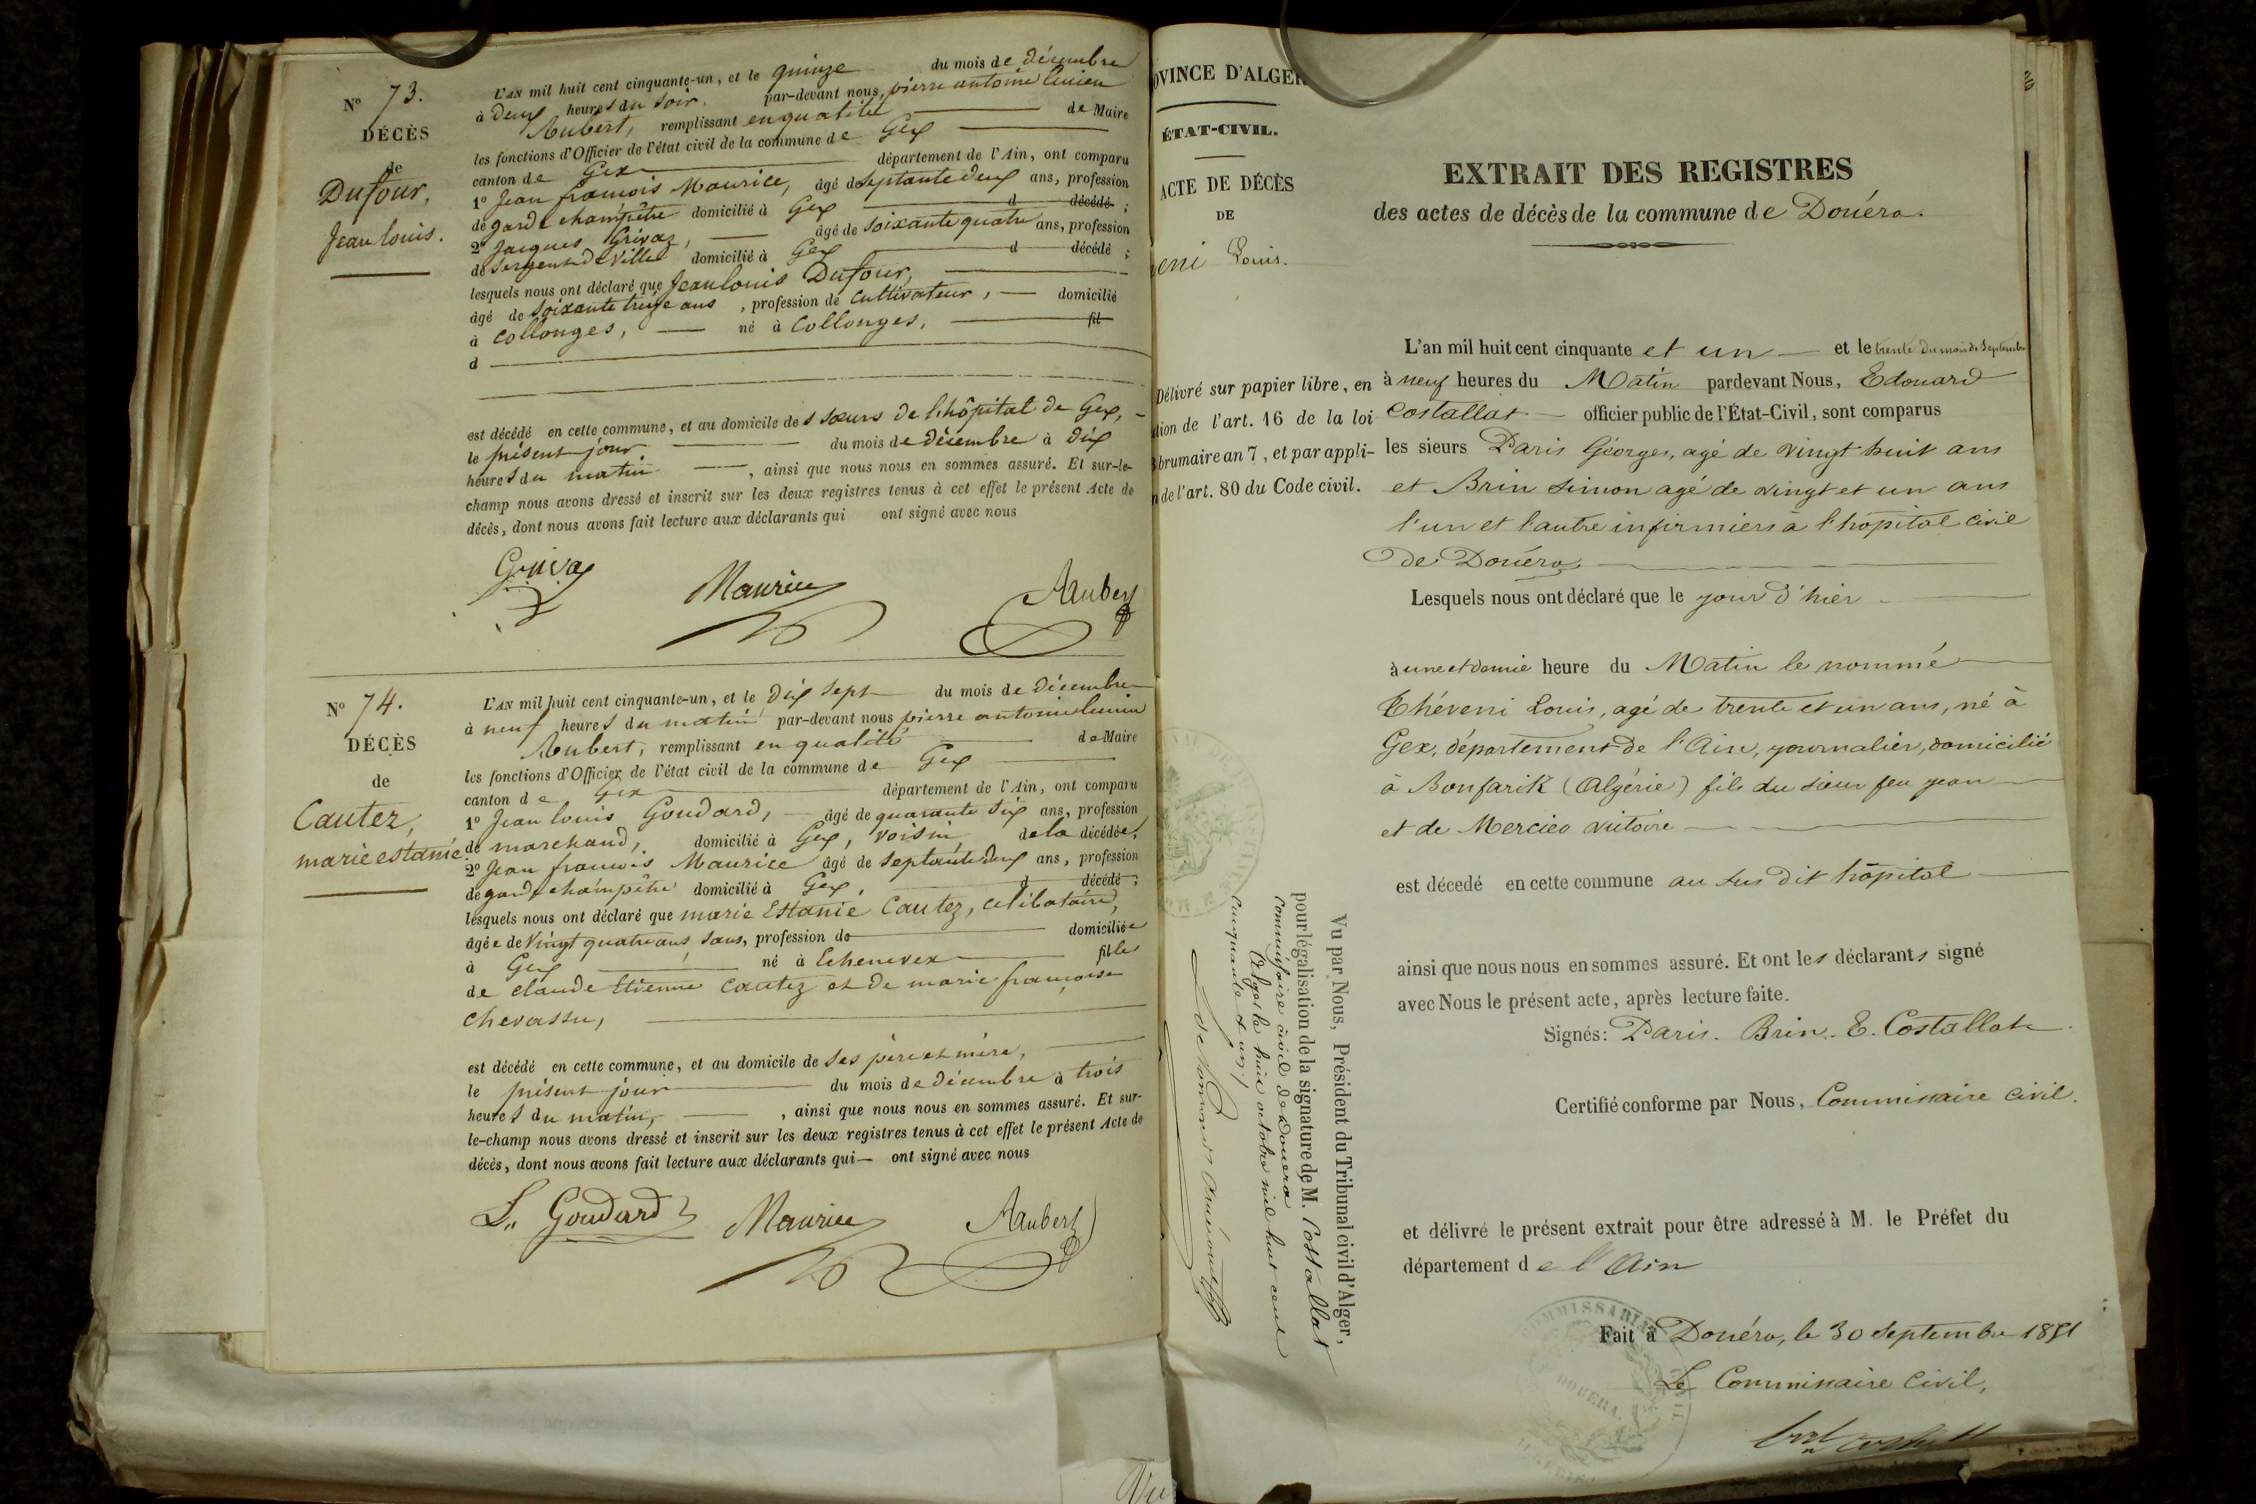 Nº 73.
DÉCÈS
de
Dufour,
Jean louis.
L'AN mil huit cent cinquante-un, et le quinze du mois de décembre
à deux heures du soir, par-devant nous, pierre antoine lucien
Aubert, remplissant en qualité de Maire
les fonctions d'Officier de l'état civil de la commune de Gex
canton de Gex département de l'Ain, ont comparu
1º Jean françois Maurice, âgé de septante deux ans, profession
de garde champêtre domicilié à Gex d décédé ;
2º Jacques Grivaz, âgé de soixante quatre ans, profession
de sergent de ville domicilié à Gex d décédé ;
lesquels nous ont déclaré que Jean louis Dufour,
âgé de soixante treize ans , profession de cultivateur, domicilié
à Collonges, né à Collonges, fil
d
est décédé en cette commune, et au domicile des sœurs de l'hôpital de Gex,
le présent jour du mois de décembre à dix
heures du matin , ainsi que nous nous en sommes assuré. Et sur-le-
champ nous avons dressé et inscrit sur les deux registres tenus à cet effet le présent Acte de
décès, dont nous avons fait lecture aux déclarants qui ont signé avec nous
Grivaz Maurice Aubert
Nº 74.
DÉCÈS
de
Cautez,
marie estanie.
L'AN mil huit cent cinquante-un, et le dix sept du mois de décembre
à neuf heures du matin par-devant nous pierre antoine lucien
Aubert, remplissant en qualité de Maire
les fonctions d'Officier de l'état civil de la commune de Gex
canton de Gex département de l'Ain, ont comparu
1º Jean louis Goudard, âgé de quarante dix ans, profession
de marchand, domicilié à Gex, voisin de la décédée,
2º Jean françois Maurice âgé de septante deux ans, profession
de garde champêtre domicilié à Gex, d décédé ;
lesquels nous ont déclaré que marie Estanie Cautez, célibataire,
âgée de vingt quatre ans, sans, profession de domiciliée
à Gex né à Echenevex fille
de claude Etienne Cautez et de marie françoise
chevassu,
est décédé en cette commune, et au domicile de ses père et mère,
le présent jour du mois de décembre à trois
heures du matin, , ainsi que nous nous en sommes assuré. Et sur-
le-champ nous avons dressé et inscrit sur les deux registres tenus à cet effet le présent Acte de
décès, dont nous avons fait lecture aux déclarants qui ont signé avec nous
L. Goudard Maurice Aubert
OVINCE D'ALGER
ÉTAT-CIVIL.
ACTE DE DÉCÈS
DE
eni Louis.
Délivré sur papier libre, en
tion de l'art. 16 de la loi
brumaire an 7, et par appli-
n de l'art. 80 du Code civil.
Vu par Nous, Président du Tribunal civil d'Alger,
pour légalisation de la signature de M. Costallat
commissaire civil de Douera
Alger le huit octobre mil huit cent
cinquante et un
EXTRAIT DES REGISTRES
des actes de décès de la commune de Douéra.
L'an mil huit cent cinquante et un et le trente du mois de Septembre
à neuf heures du Matin pardevant Nous, Edouard
Costallat officier public de l'État-Civil, sont comparus
les sieurs Paris Géorges, agé de vingt huit ans
et Brin simon agé de vingt et un ans
l'un et l'autre infirmiers à l'hôpital civil
de Douéra
Lesquels nous ont déclaré que le jour d'hier
à une et demie heure du Matin le nommé
Théveni Louis, agé de trente et un ans, né à
Gex, département de l'Ain, journalier, domicilié
à Bonfarik (Algérie) fils du sieur feu jean
et de Mercier victoire
est décedé en cette commune au sus dit hôpital
ainsi que nous nous en sommes assuré. Et ont les déclarants signé
avec Nous le présent acte, après lecture faite.
Signés: Paris. Brin. E. Costallat
Certifié conforme par Nous, Commissaire civil.
et délivré le présent extrait pour être adressé à M. le Préfet du
département de l'Ain
Fait à Douéra, le 30 septembre 1851
Le Commissaire Civil,
DOUERA.